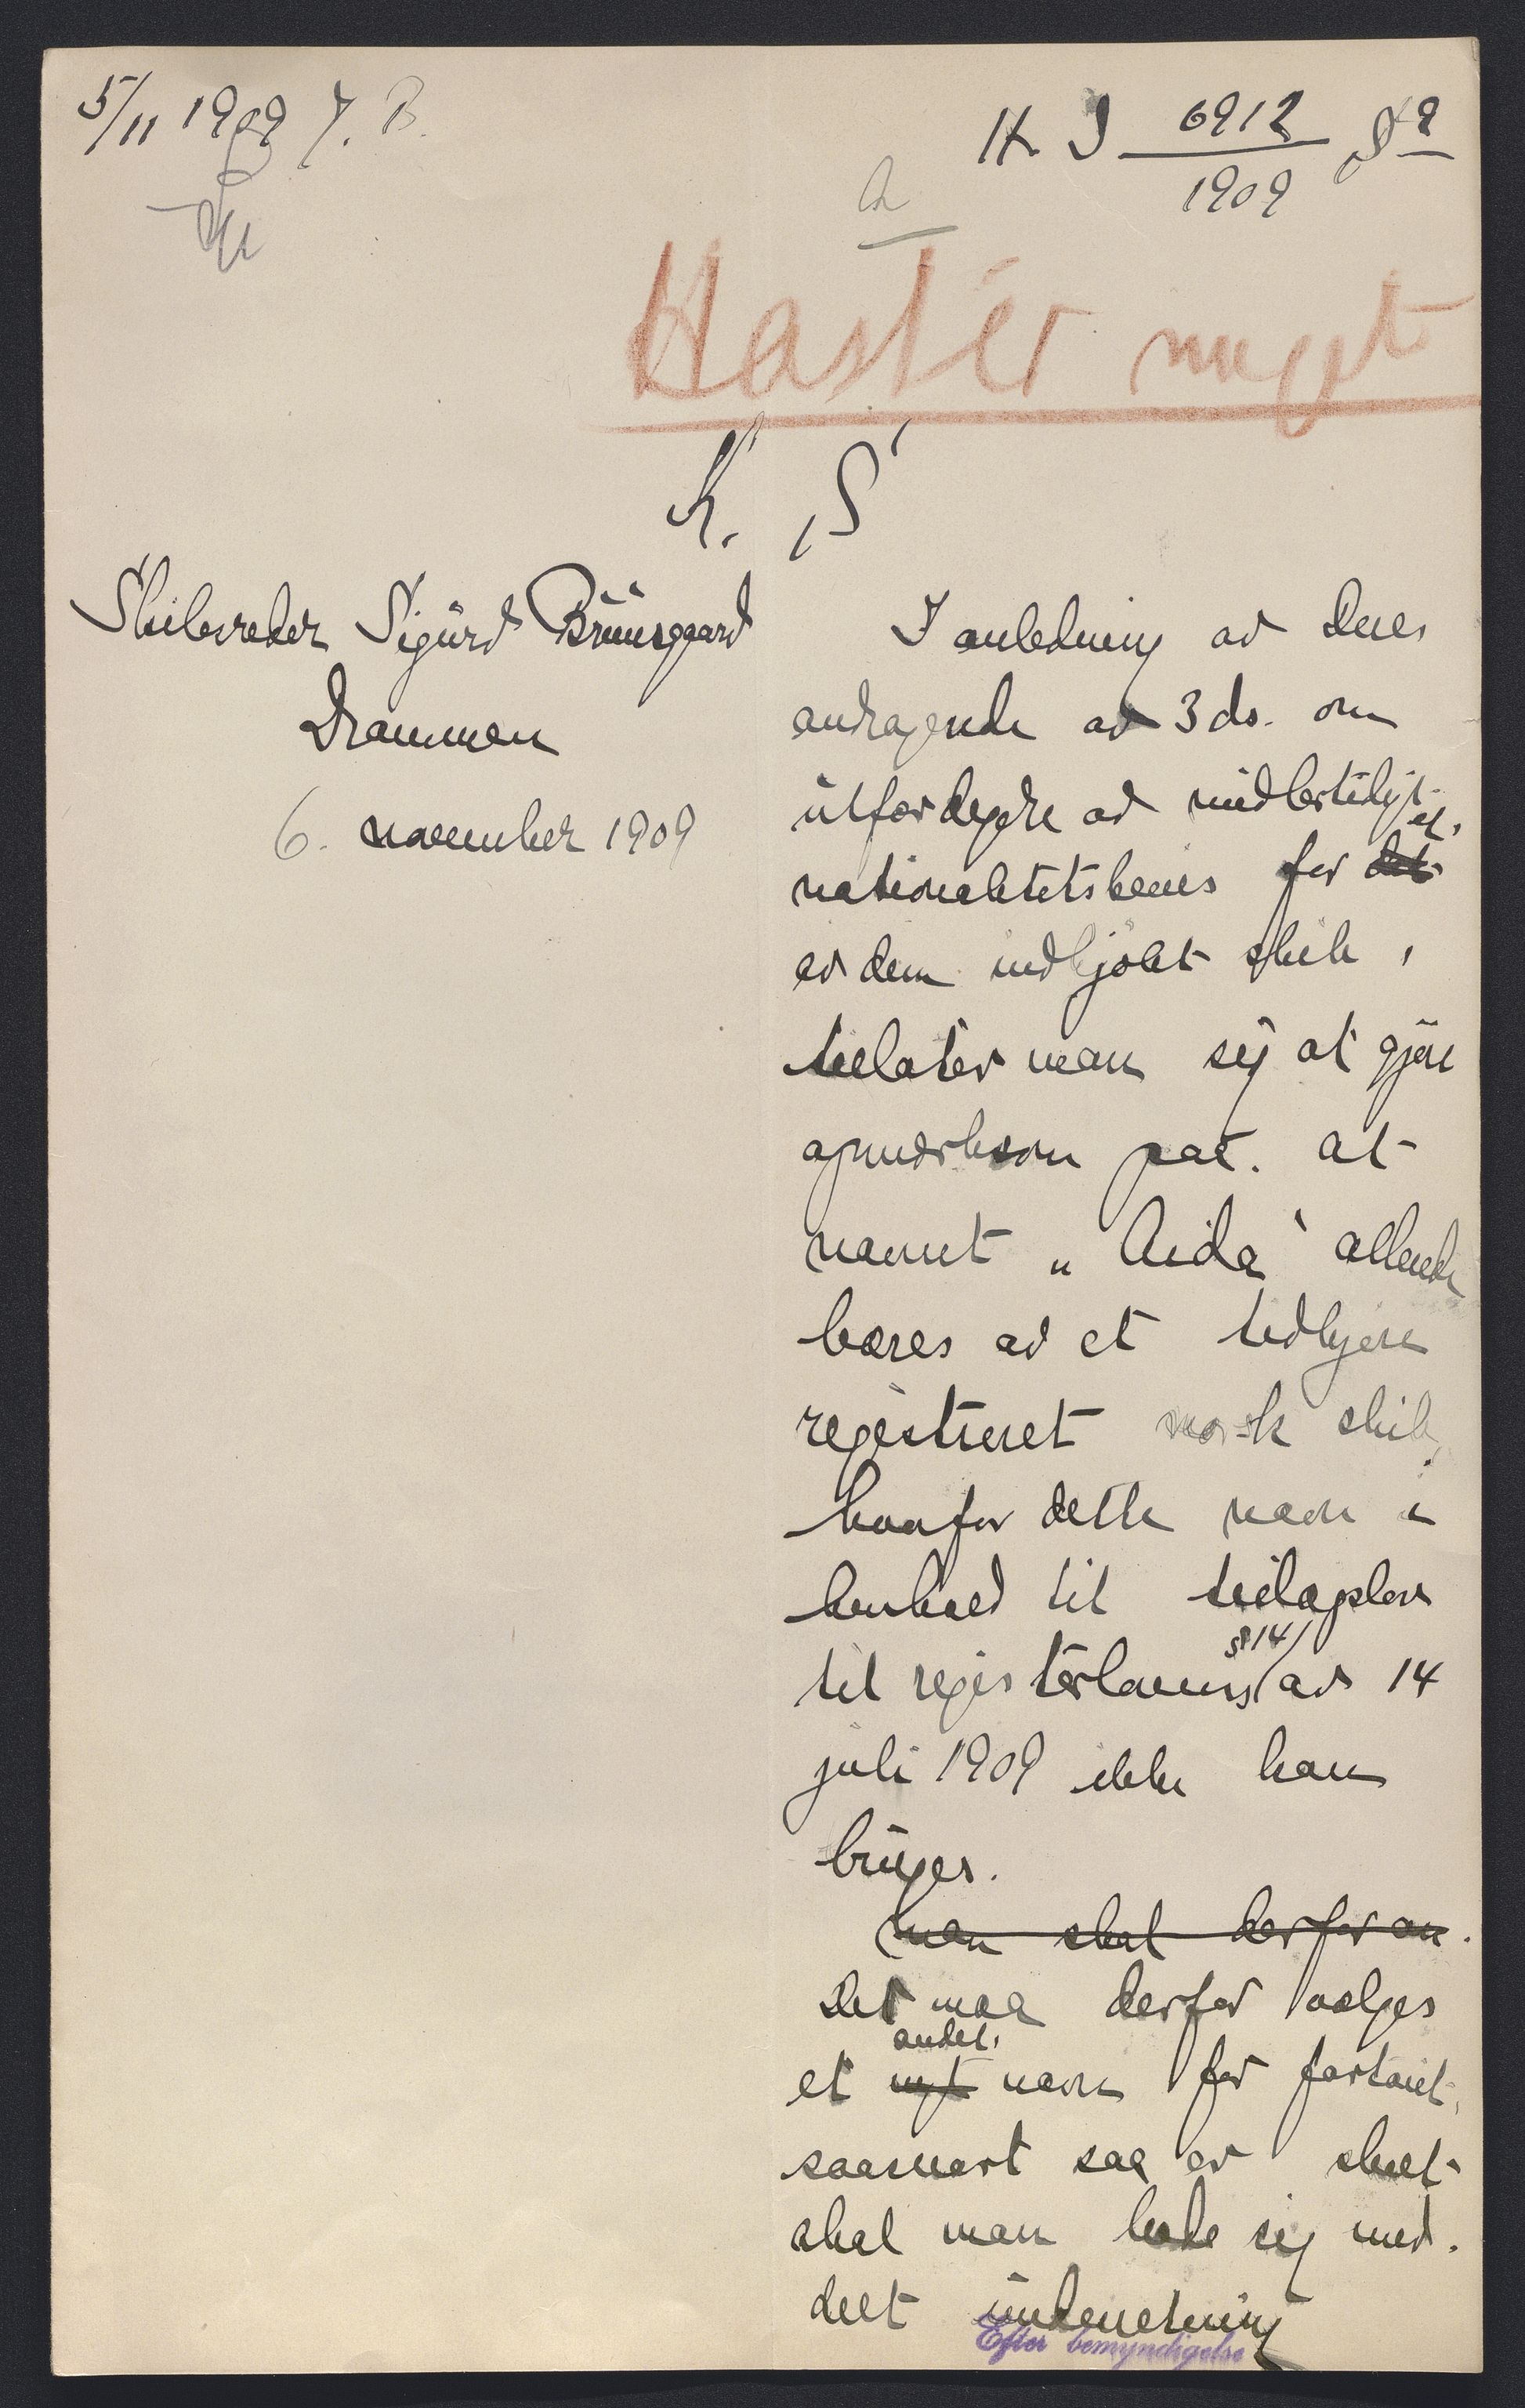 5/11 1909 J. B.
H. J 6912/1909
Haster meget
K. S
Skibsreder Sigurd Bruusgaard
Drammen
6. november 1909
I anledning av Deres
andragende av 3 ds. om
utfærdigelse av midlertidigt
nationalitetsbevis for det et
av dem indkjøbt skib,
tillater man sig at gjøre
opmerksom paa. at
navnet „Aida" allerede
bæres av et tidligere
registreret norsk skib,
hvorfor dette navn i
henhold til tillægslov
til registerlovens § 14 av 14
juli 1909 ikke kan
bruges.
Man skal derfor an
Det maa derfor vælges
et nyt andet navn for fartøiet,
saasnart saa er skeet
skal man bede sig med-
delt underretning
Efter bemyndigelse